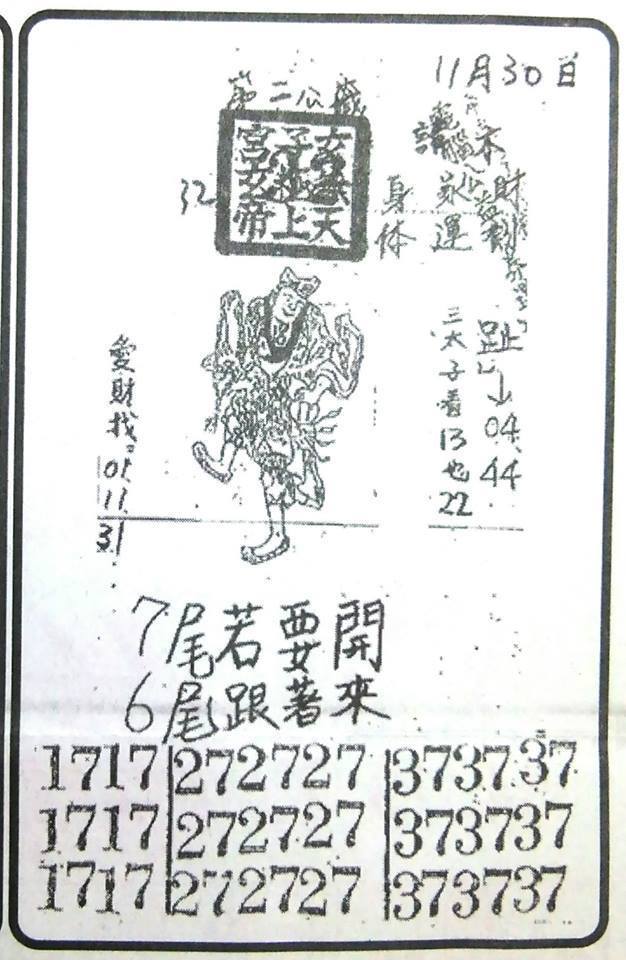 11月30日
第二公籤
玄子宮
無極玄
天上帝
32
身体
家運
財利
趾
↓04.44
三太子看13也22
愛財找
01.11.31
7尾若要開
6尾跟著來
1717 272727 373737
1717 272727 373737
1717 272727 373737